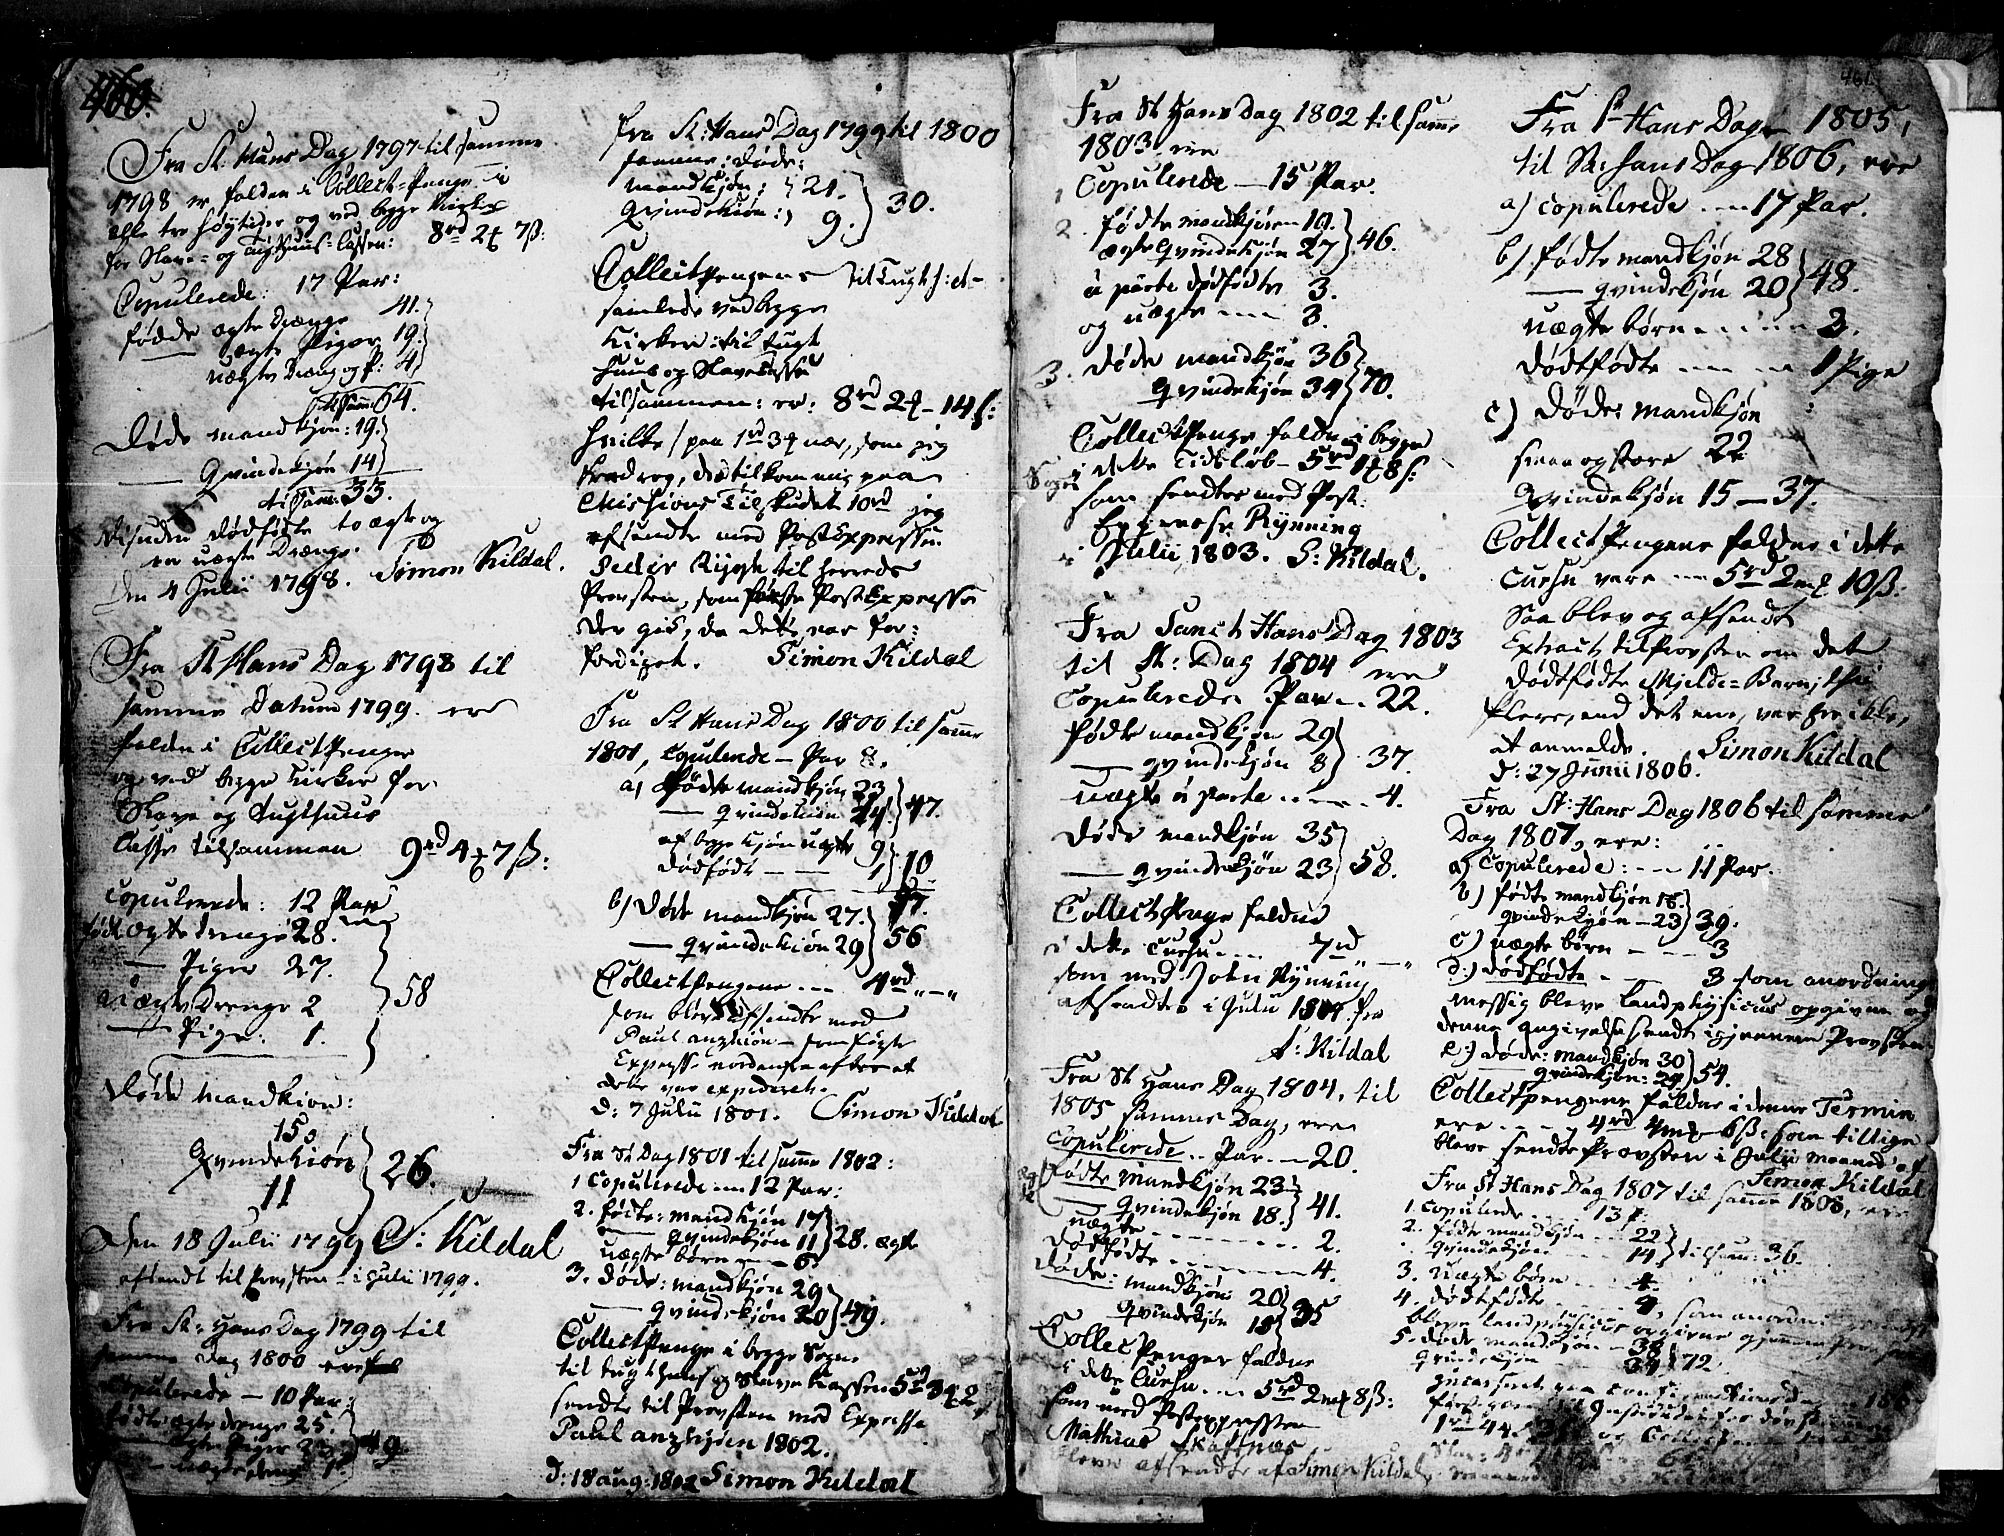 460.
Fra St. Hans Dag 1797 til samme
1798 er falden i Collect=Penge i
alle tre Høytider og ved begge Kirker
for Slave= og Tugthuus=Cassen: 8rd 2 7ß:
Copulerede: 17 Par:
fødde ægte Drenge 41.
ægte Piger 19.
uægte Dreng og P: 4
tilsamm: 64.
Døde mandkjøn: 19.
Qvindekjøn 14
tilsamm: 33.
desuden dødfødte to ægte og
en uægte Drenge.
den 4 Julii 1798. Simon Kildal.
Fra St Hans Dag 1798 til
samme Datum 1799. ere
falden i Collect Penger
og ved begge Kirker for
Slave og Tugthuus
Casse tilsammen 9rd 4 7ß:
Copulerede: 12 Par
født ægte drenge 28.
Piger 27.
uægte Drenge 2
Pige: 1.
58
Døde Mandkion:
15
Qvindekiøn
11
26.
Den 18 Julii 1799 S: Kildal
afsendt til Provsten i Julii 1799.
Fra St: Hans Dag 1799 til
samme Dag 1800 ere
Copulerede — 10 Par:
fødte ægte drenge 25.
49.
fra St: Hans Dag 1799 til 1800
samme: døde:
mandkjøn: 21.
Qvindekiøn: 9.
30.
Collectpengene til Tugth: et-
samlede ved begge
Kirker: til Tugt
huus og Slave Casse
tilsammen: er: 8rd 2 - 14ß:
hvilke paa 1rd 3 nær, som jeg
fradrog, det tilkom mig paa
Missions Tilskudet 10rd jeg
afsendte med Post Expressen
Peder Rijgh til Herreds
Provsten, som første Post Expresse
der gik, da dette var for:
fordiget. Simon Kildal
Fra St Hans Dag 1800 til samme
1801, Copulerede — Par 8.
a) fødte mandkjøn 23
qvindekiøn 24.
47.
af begge kjøn uægte 9
dødfødt — 1
10
57.
b) Døde mandkjøn 27.
qvindekiøn 29
56
Collectpengene — 4rd „ — „
som bleve afsendte med
Paul anzkiøn — som fögte
Express nordenfra efter at
dette var expideret.
d: 7 Julii 1801. Simon Kildal
Fra St Dag 1801 til samme 1802:
1 Copulerede — 12 Par:
2. fødte: mandkjøn 17
qvindekjøn 11
28. ægte
uægte børn — 6
3. døde: mandkjøn 29
qvindekjøn 20
49.
Collect Penge i begge Sogne
til tugthuus og Slave Kassen 5rd 3 2
sendte til Provsten med Expresse
Paul anzkjøen 1802.
d: 18 aug: 1802 Simon Kildal
461.
Fra St Hans Dag 1802 til samme
1803 ere
1 Copulerede — 15 Par.
2. fødte mandkjøn 19.
ægte Qvindekjøn 27
46.
a parte dødfødte 3.
og uægte — 3.
3. døde mandkjøn 36
Qvindekjøn 34
70.
Collect Penge faldne i begge
Sogne i dette Tidsløb — 5rd 1 8ß:
som sendtes med Post
Expresse Rÿnning
Julii 1803. S: Kildal.
Fra Sanct Hans Dag 1803
til St: Dag 1804 ere
Copulerede Par — 22.
fødte mandkjøn 29
qvindekjøn 8
37.
uægte a parte — 4.
døde mandkjøn 35
qvindekjøn 23
58.
Collect Penge faldne
i dette Cursu — 7rd „ — „
som med John Rÿnning
afsendtes i Julii 1804. fra
S: Kildal
Fra St Hans Dag 1804, til
1805 samme Dag, ere
Copulerede — Par — 20.
fødte mandkjøn 23
Qvindekjøn 18.
41.
uægte — 2.
dødfødte — 4.
døde: mandkjøn 20
Qvindekjøn 15
35
Collect Penger faldne
i dette Cursu — 5rd 2 8ß:
som med Postexpressen
Mathias Skaffnæs
bleve afsendte af Simon Kildal
Fra St Hans Dag 1805,
til St: Hans Dag 1806, ere
a) copulerede — 17 Par.
b) fødte mandkjøn 28
qvindekjøn 20
48.
uægte børn — 3.
dødfødte — 1 Pige
c) døde: mandkjøn
smaa og store 22
Qvindekjøn 15 — 37.
Collect Pengene faldne i dette
Cursu vare — 5rd 2 10ß:
Saa blev og afsendt
Extract til Provsten om det
dødfødte Mjelde=Barn, thi
flere, end det ene, var her ikke,
at anmelde. Simon Kildal
d: 27 Junii 1806.
Fra St: Hans Dag 1806 til samme
Dag 1807, ere:
a) Copulerede: — 11 Par.
b) fødte mandkjøn 16.
qvindekjøn — 23
39.
c) uægte børn — 3
d:) dødfødte — 3 som anordning
messig bleve Landphysicus opgivne og
denne Angivelse sendt igjennem Provsten
e:) døde: mandkjøn 30
qvindekjøn: 24
54.
Collectpengene faldne i denne Termin
ere — 4rd 4 6ß: som tillige
bleve sendte Provsten i Julii maaned af
Simon Kildal
Fra St Hans Dag 1807 til samme 1808, ere
1. Copulerede — 13 P.
2. fødte mandkjøn — 22
qvindekjøn — 14
tilsam: 36.
3. uægte børn — 4
4. dødfødte — 4, som anordningsmessig
bleve Landphysicus opgivne gjennem Provsten
5. døde mandkjøn — 38
qvindekjøn — 34
72